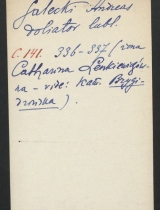 Gałecki Andreas
doliator lubl.
C 141. 336-337 (żona
Catharina Lenkiewiczów-
na - vide: Kat. Brygi-
)